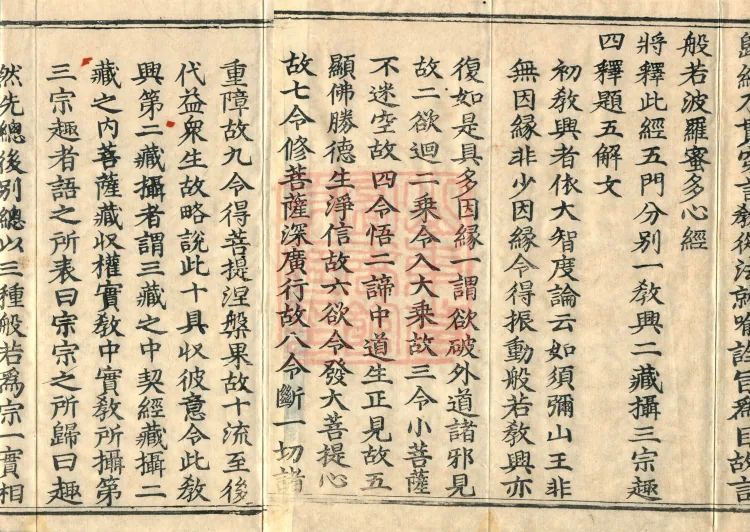 從法就喻詮旨爲目故言
般若波羅蜜多心經
將釋此經五門分別一教興二藏攝三宗趣
四釋題五解文
初教興者依大智度論云如須彌山王非
無因緣非少因緣令得振動般若教興亦
復如是具多因緣一謂欲破外道諸邪見
故二欲迴二乘令入大乘故三令小菩薩
不迷空故四令悟二諦中道生正見故五
顯佛勝德生淨信故六欲令發大菩提心
故七令修菩薩深廣行故八令斷一切諸
重障故九令得菩提涅槃果故十流至後
代益衆生故略說此十具收彼意令此教
興第二藏攝者謂三藏之中契經藏攝二
藏之內菩薩藏収權實教中實教所攝第
三宗趣者語之所表曰宗宗之所歸曰趣
然先總後別總以三種般若爲宗一實相